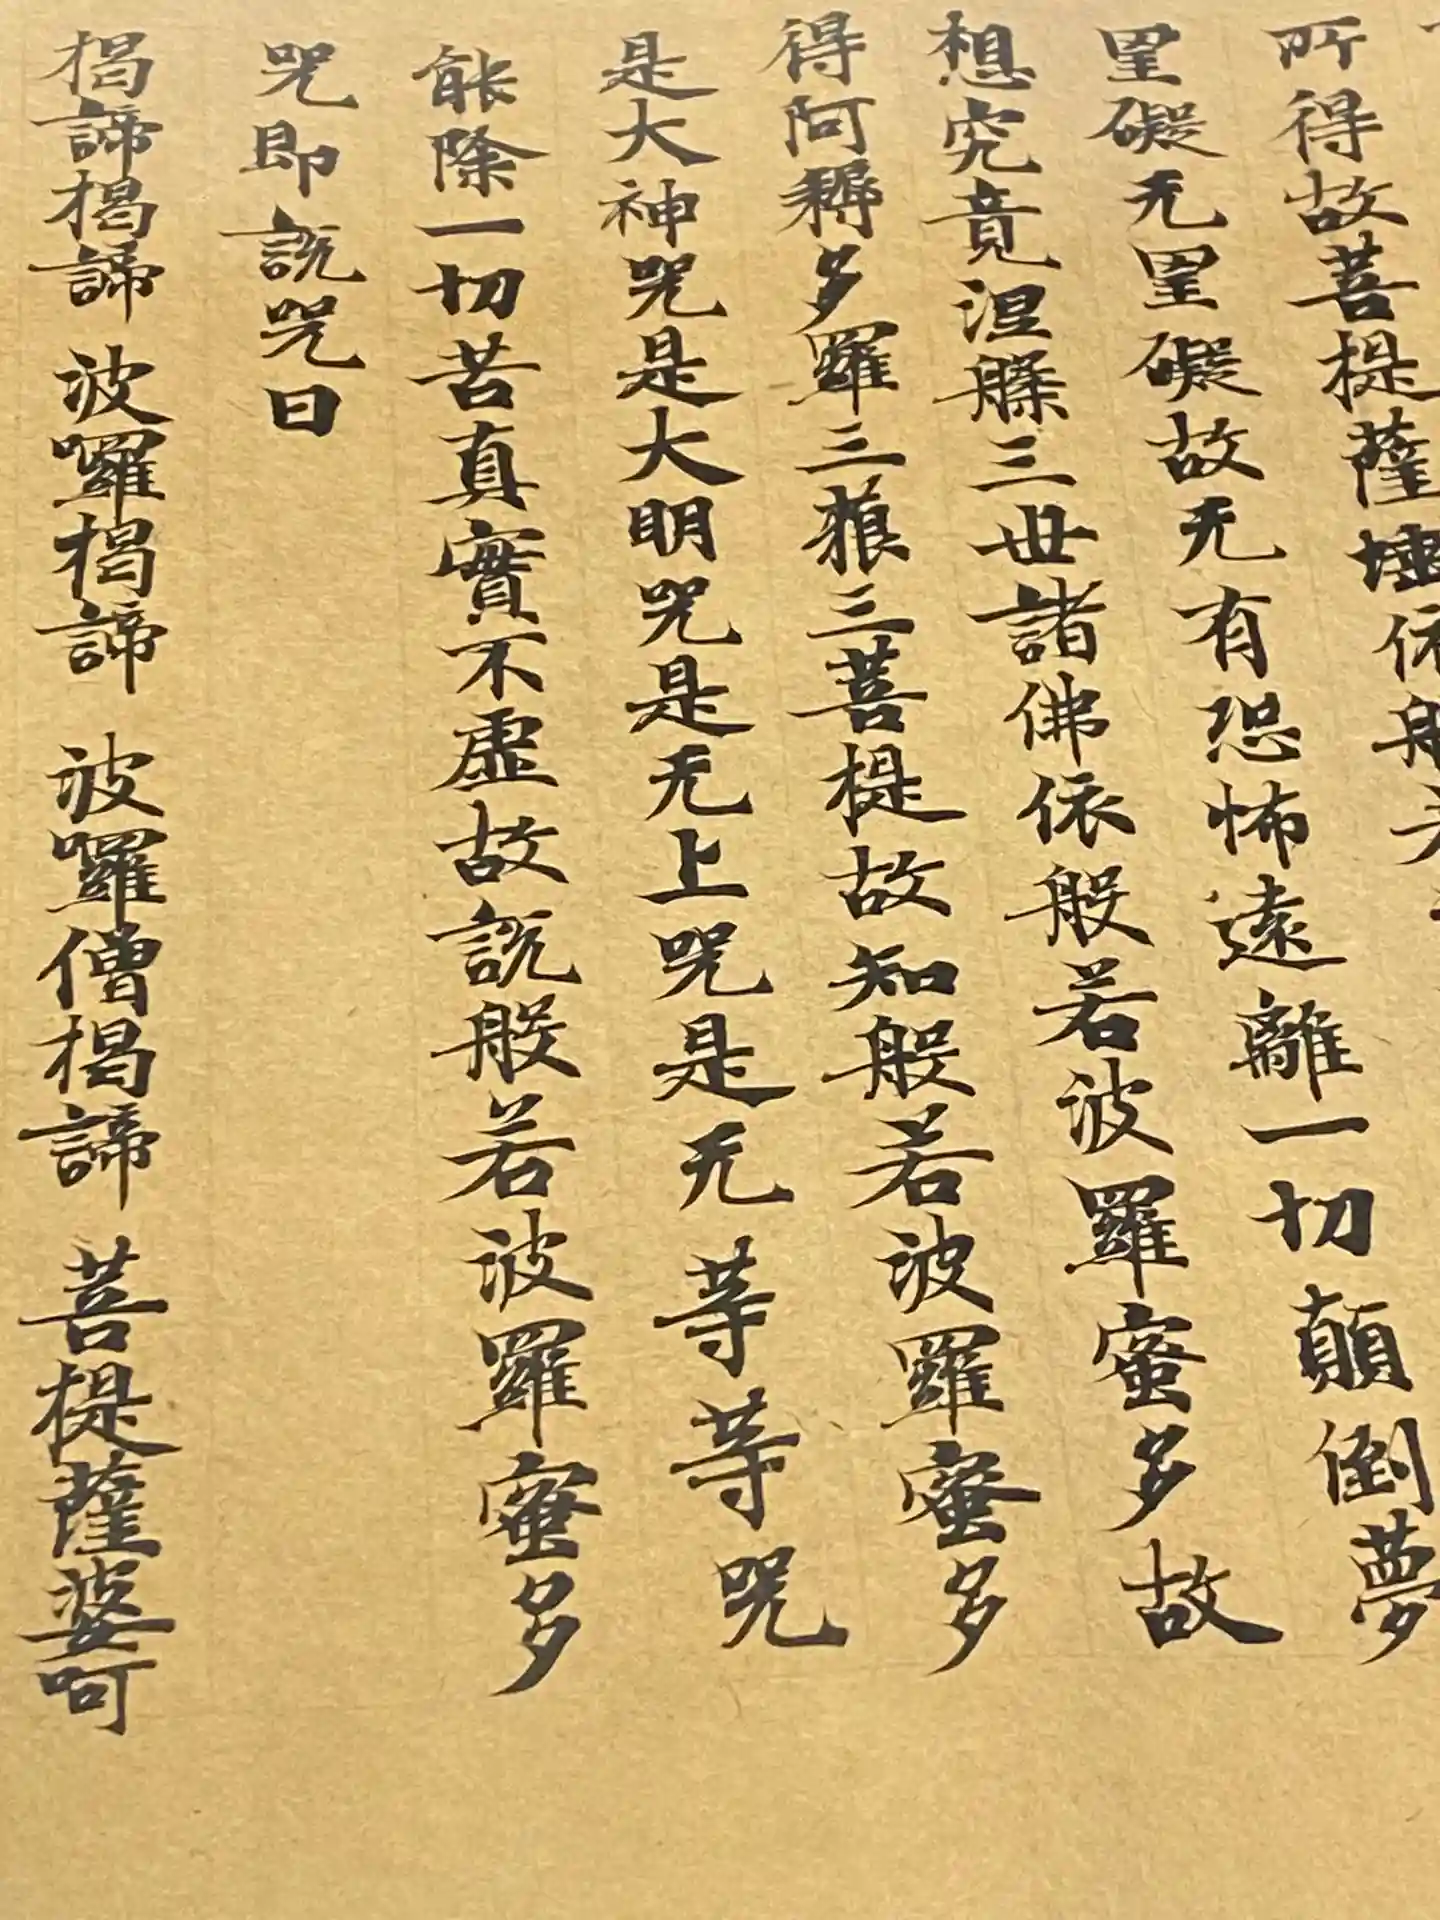 所得故菩提薩埵依般
罣礙无罣礙故无有恐怖遠離一切顛倒夢
想究竟涅槃三世諸佛依般若波羅蜜多故
得阿耨多羅三藐三菩提故知般若波羅蜜多
是大神咒是大明咒是无上咒是无等等咒
能除一切苦真實不虛故説般若波羅蜜多
咒即説咒曰
揭諦揭諦 波囉揭諦 波囉僧揭諦 菩提薩婆呵